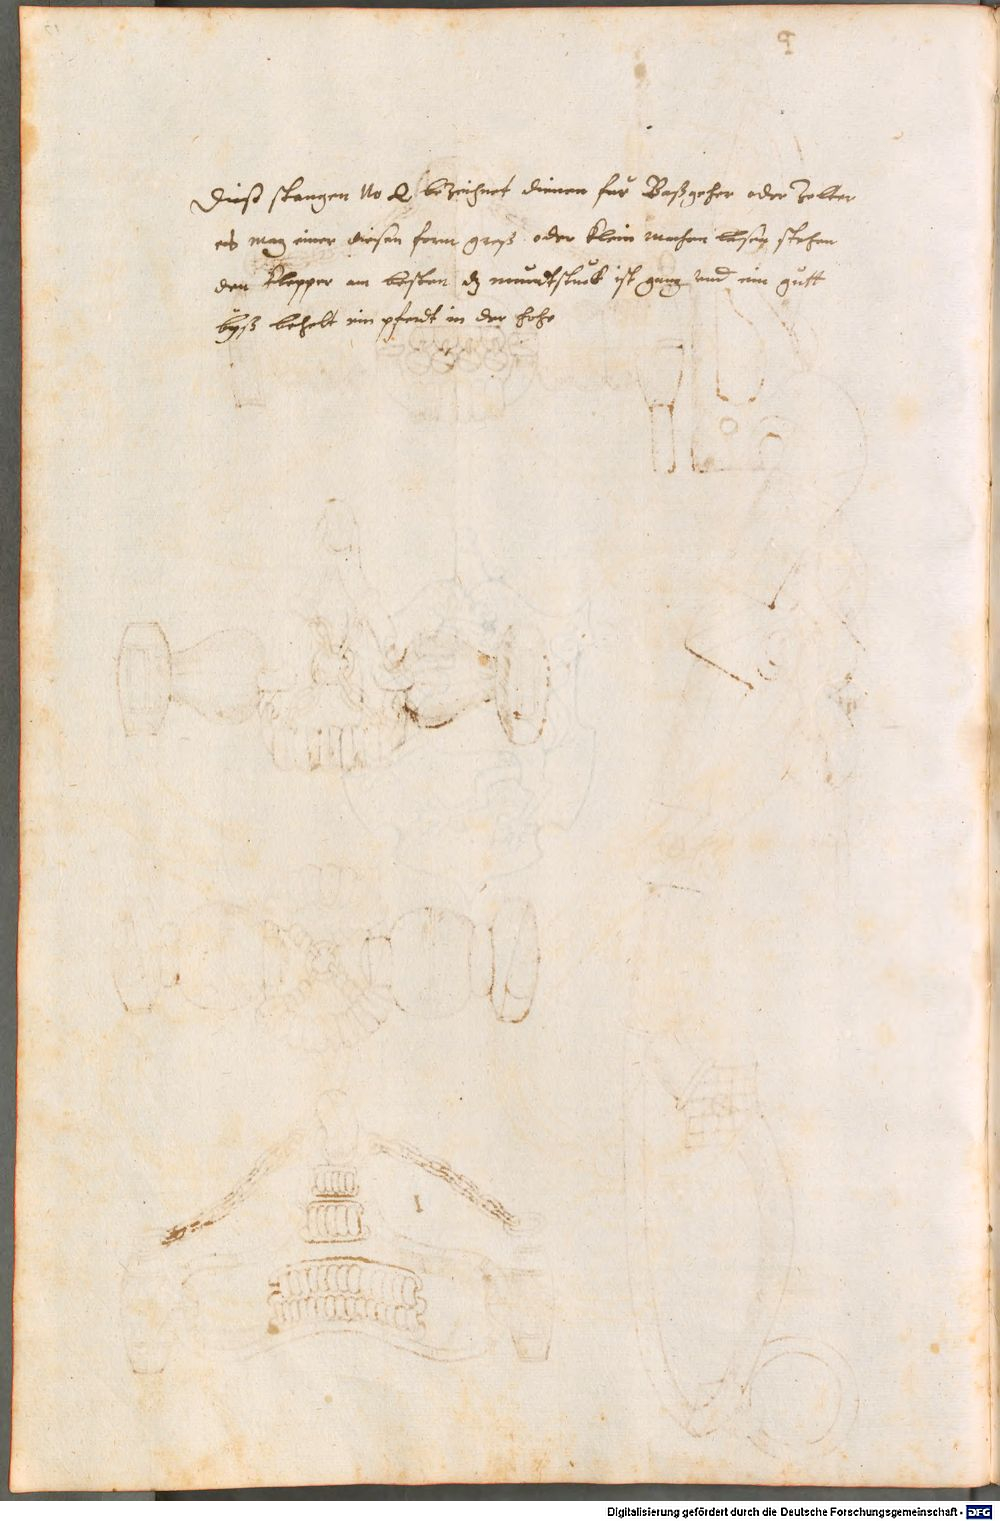 Diese stangen No Q bezeichnet dienen für Baßgeher oder Zelter
es mag einer diesen form groß oder klein machen lasen stehen
den klepper am besten dz mundtstuck ist ganz und ein gutt
byß behelt ein pferdt in der hohe
I
Digitalisierung gefördert durch die Deutsche Forschungsgemeinschaft - DFG